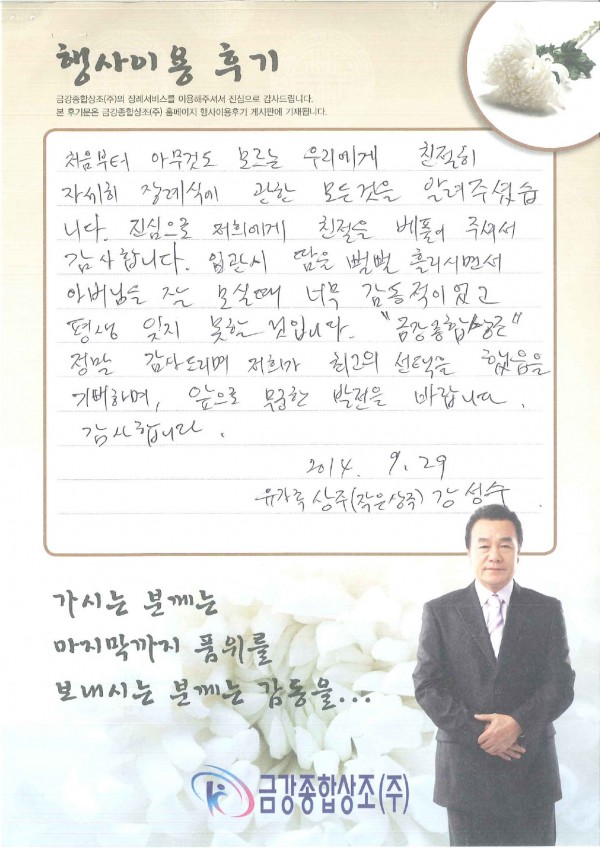 행사이용 후기
금강종합상조(주)의 장례서비스를 이용해주셔서 진심으로 감사드립니다.
본 후기문은 금강종합상조(주) 홈페이지 행사이용후기 게시판에 기재됩니다.
처음부터 아무것도 모르는 우리에게 친절히
자세히 장례식에 관한 모든것을 알려주셨습
니다. 진심으로 저희에게 친절을 베풀어 주셔서
감사합니다. 입관시 땀을 뻘뻘 흘리시면서
아버님을 잘 모실때 너무 감동적이었고
평생 잊지 못할 것입니다. "금강종합상조"
정말 감사드리며 저희가 최고의 선택을 했음을
기뻐하며, 앞으로 무궁한 발전을 바랍니다.
감사합니다.
2014. 9. 29
유가족 상주(작은상주) 강성수
가시는 분께는
마지막까지 품위를
보내시는 분께는 감동을...
금강종합상조(주)